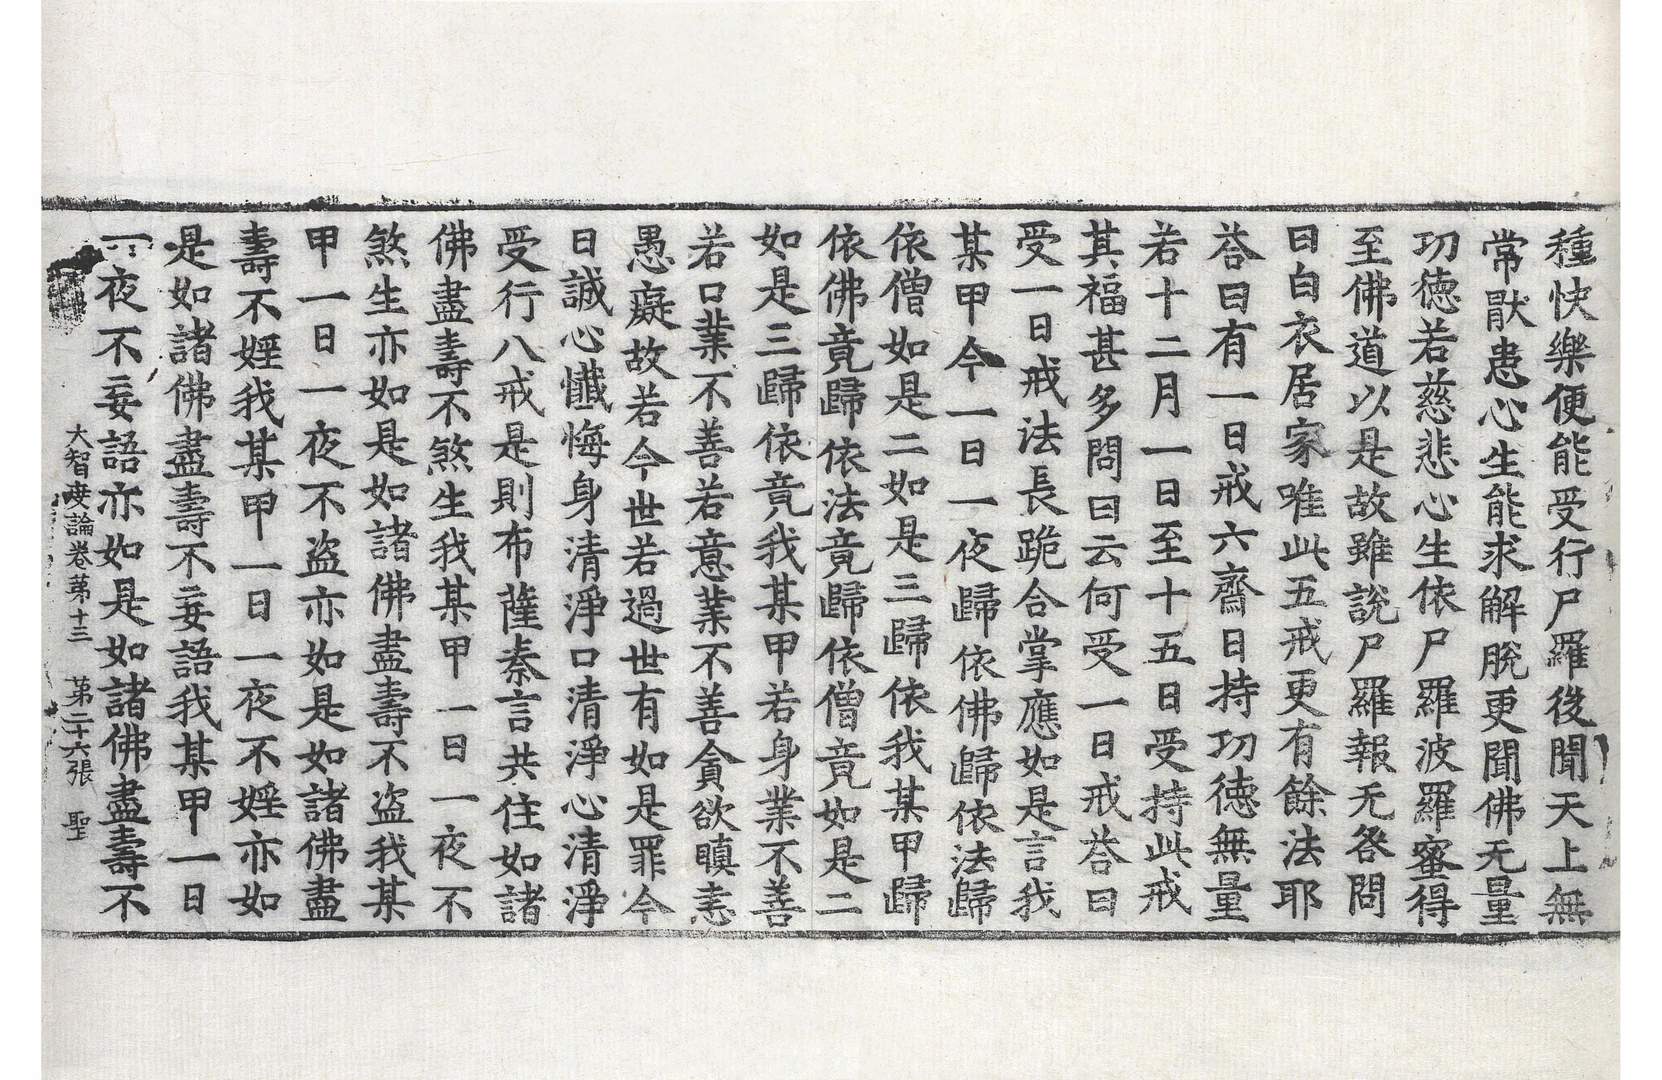 種快樂便能受行尸羅後聞天上無
常猒患心生能求解脫更聞佛无量
功德若慈悲心生依尸羅波羅蜜得
至佛道以是故雖說尸羅報无咎問
曰白衣居家唯此五戒更有餘法耶
荅曰有一日戒六齋日持功德無量
若十二月一日至十五日受持此戒
其福甚多問曰云何受一日戒荅曰
受一日戒法長跪合掌應如是言我
某甲今一日一夜歸依佛歸依法歸
依僧如是二如是三歸依我某甲歸
依佛竟歸依法竟歸依僧竟如是二
如是三歸依竟我某甲若身業不善
若口業不善若意業不善貪欲瞋恚
愚癡故若今世若過世有如是罪今
日誠心懺悔身清淨口清淨心清淨
受行八戒是則布薩秦言共住如諸
佛盡壽不煞生我某甲一日一夜不
煞生亦如是如諸佛盡壽不盜我某
甲一日一夜不盜亦如是如諸佛盡
壽不婬我某甲一日一夜不婬亦如
是如諸佛盡壽不妄語我某甲一日
一夜不妄語亦如是如諸佛盡壽不
大智度論卷苐十三 苐二十六張 聖